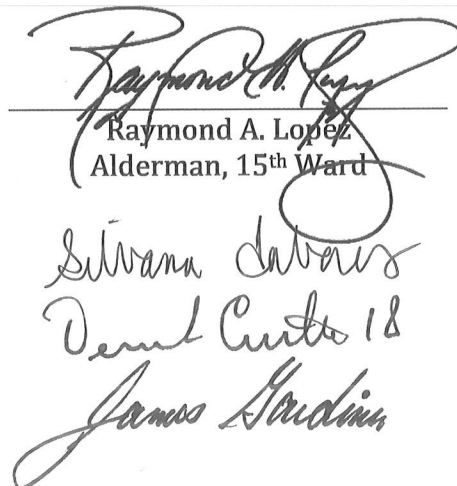 Raymond A. Lopez
Raymond A. Lopez
Alderman, 15th Ward
Silvana Tabares
Derrick Curtis 18
James Gardiner